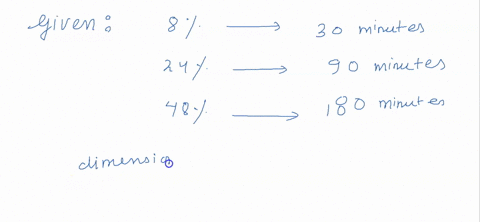 Given: 8% → 30 minutes
24% → 90 minutes
48% → 180 minutes
dimensio